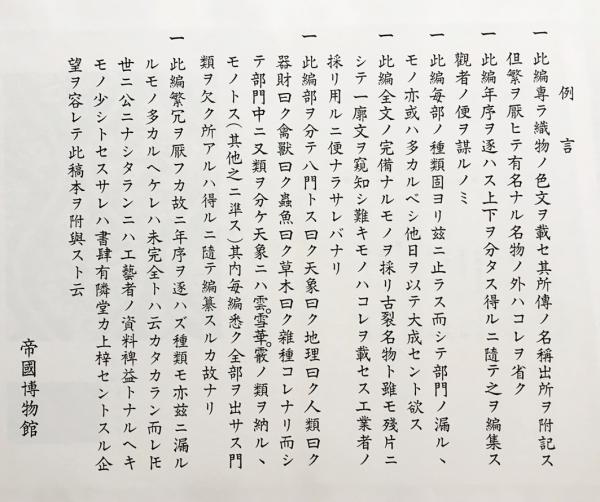 例言
一此編専ラ織物ノ色文ヲ載セ其所傳ノ名稱出所ヲ附記ス
但繁ヲ厭ヒテ有名ナル名物ノ外ハコレヲ省ク
一此編年序ヲ逐ハス上下ヲ分タス得ルニ隨テ之ヲ編集ス
觀者ノ便ヲ謀ルノミ
一此編毎部ノ種類固ヨリ玆ニ止ラス而シテ部門ノ漏ル丶
モノ亦或ハ多カルベシ他日ヲ以テ大成セント欲ス
一此編全文ノ完備ナルモノヲ採リ古裂名物ト雖モ殘片ニ
シテ一廓文ヲ窺知シ難キモノハコレヲ載セス工業者ノ
採リ用ルニ便ナラサレバナリ
一此編部ヲ分テ八門トス曰ク天象曰ク地理曰ク人類曰ク
器財曰ク禽獸曰ク蟲魚曰ク草木曰ク雜種コレナリ而シ
テ部門中ニ又類ヲ分ケ天象ニハ雲。雪華。霰ノ類ヲ納ル丶
モノトス(其他之ニ準ス)其内毎編悉ク全部ヲ出サス門
類ヲ欠ク所アルハ得ルニ隨テ編纂スルカ故ナリ
一此編繁冗ヲ厭フカ故ニ年序ヲ逐ハズ種類モ亦玆ニ漏ル
ルモノ多カルヘケレハ未完全トハ云カタカラン而レ𪜈
世ニ公ニナシタランニハ工藝者ノ資料裨益トナルヘキ
モノ少シトセスサレハ書肆有隣堂カ上梓セントスル企
望ヲ容レテ此稿本ヲ附與スト云
帝國博物館